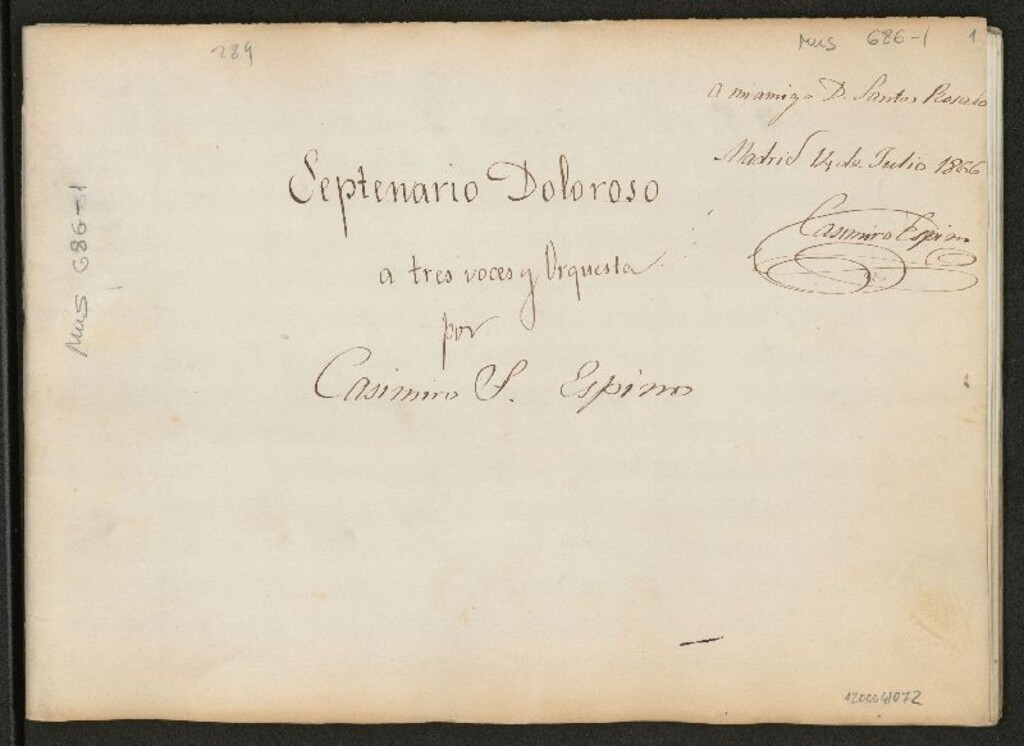 284
Mus 686-1 1
a mi amigo D. Santos Rosado
Madrid 14 de Julio 1866
Casimiro Espino
Septenario Doloroso
a tres voces y Orquesta
por
Casimiro S. Espino
Mus 686-1
1200041072